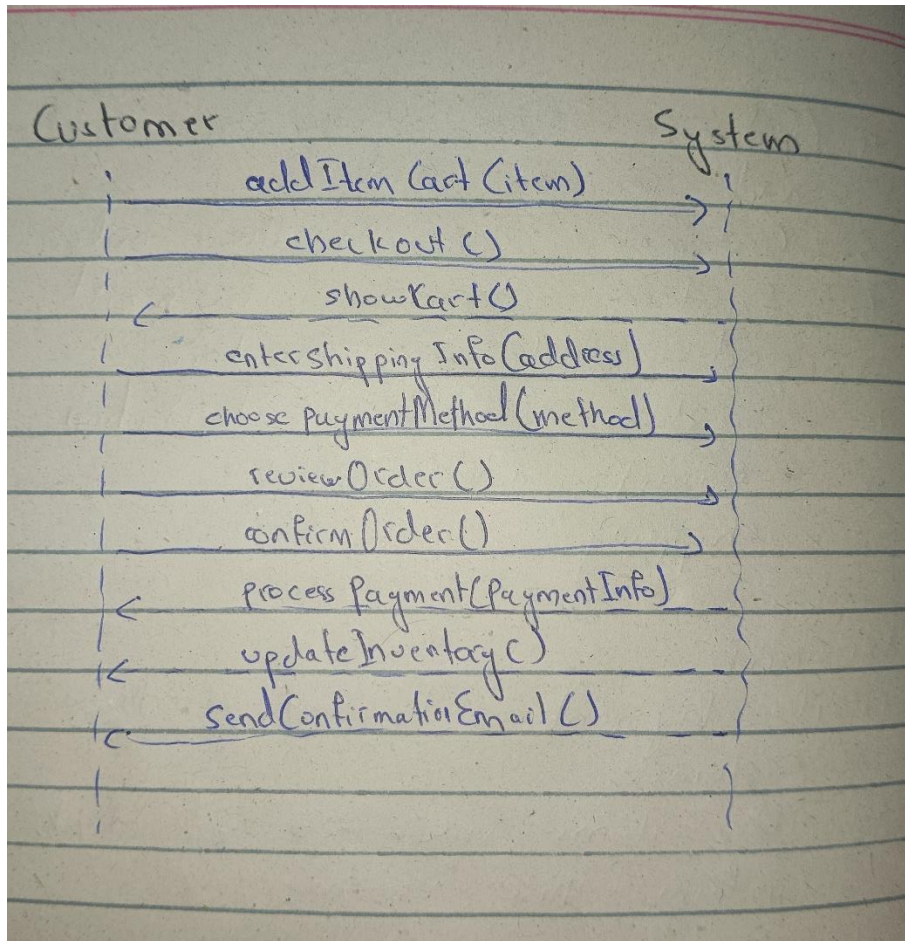 Customer System
addItem Cart (item)
checkout ()
showCart()
entershipping Info (address)
choose paymentMethod (method)
reviewOrder ()
confirmOrder()
process Payment (PaymentInfo)
updateInventory ()
sendConfirmationEmail ()